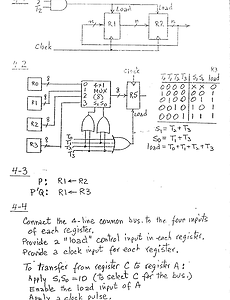 Load
R1
R2
Clock
4-2
Clock
R0
R1
R2
R3
4x1
MUX
S1 S0
R5
Load
T0
T1
T2
T3
T0 T1 T2 T3 S1 S0 load
0 0 0 0 X X 0
S1 = T2 + T3
S0 = T1 + T3
load = T0 + T1 + T2 + T3
4-3
P: R1 ← R2
P'Q: R1 ← R3
4-4
Connect the 4-line common bus to the four inputs
of each register.
Provide a "load" control input in each register.
Provide a clock input for each register.
To transfer from register C to register A:
Apply S1S0 = 10 (to select C for the bus.)
Enable the load input of A
Apply a clock pulse.